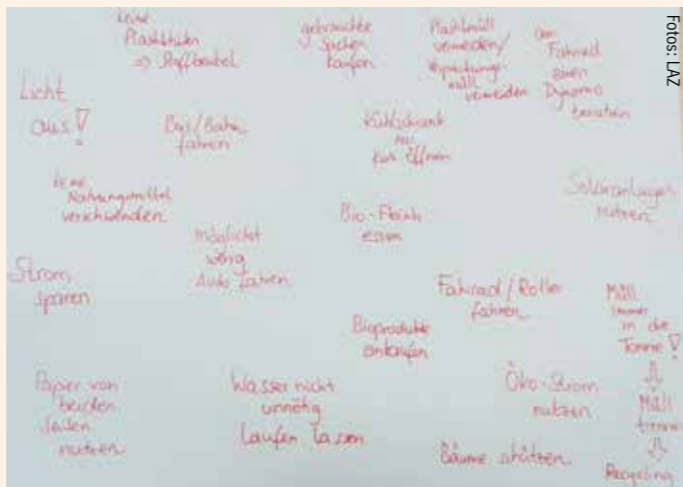 keine
Plastiktüten
=> Stoffbeutel
gebrauchte
Sachen
kaufen
Plastikmüll
vermeiden/
Verpackungs-
müll
vermeiden
am
Fahrrad
einen
Dynamo
benutzen
Fotos: LAZ
Licht
aus!
Bus/Bahn
fahren
Kühlschrank
nur
kurz öffnen
keine
Nahrungsmittel
verschwenden
Bio-Fleisch
essen
Solaranlagen
nutzen
möglichst
wenig
Auto fahren
Strom
sparen
Fahrrad/Roller
fahren
Müll
immer
in die
Tonne!
⇩
Müll
trennen
⇩
Recycling
Bioprodukte
einkaufen
Papier von
beiden
Seiten
nutzen
Wasser nicht
unnötig
laufen lassen
Öko-Strom
nutzen
Bäume schützen